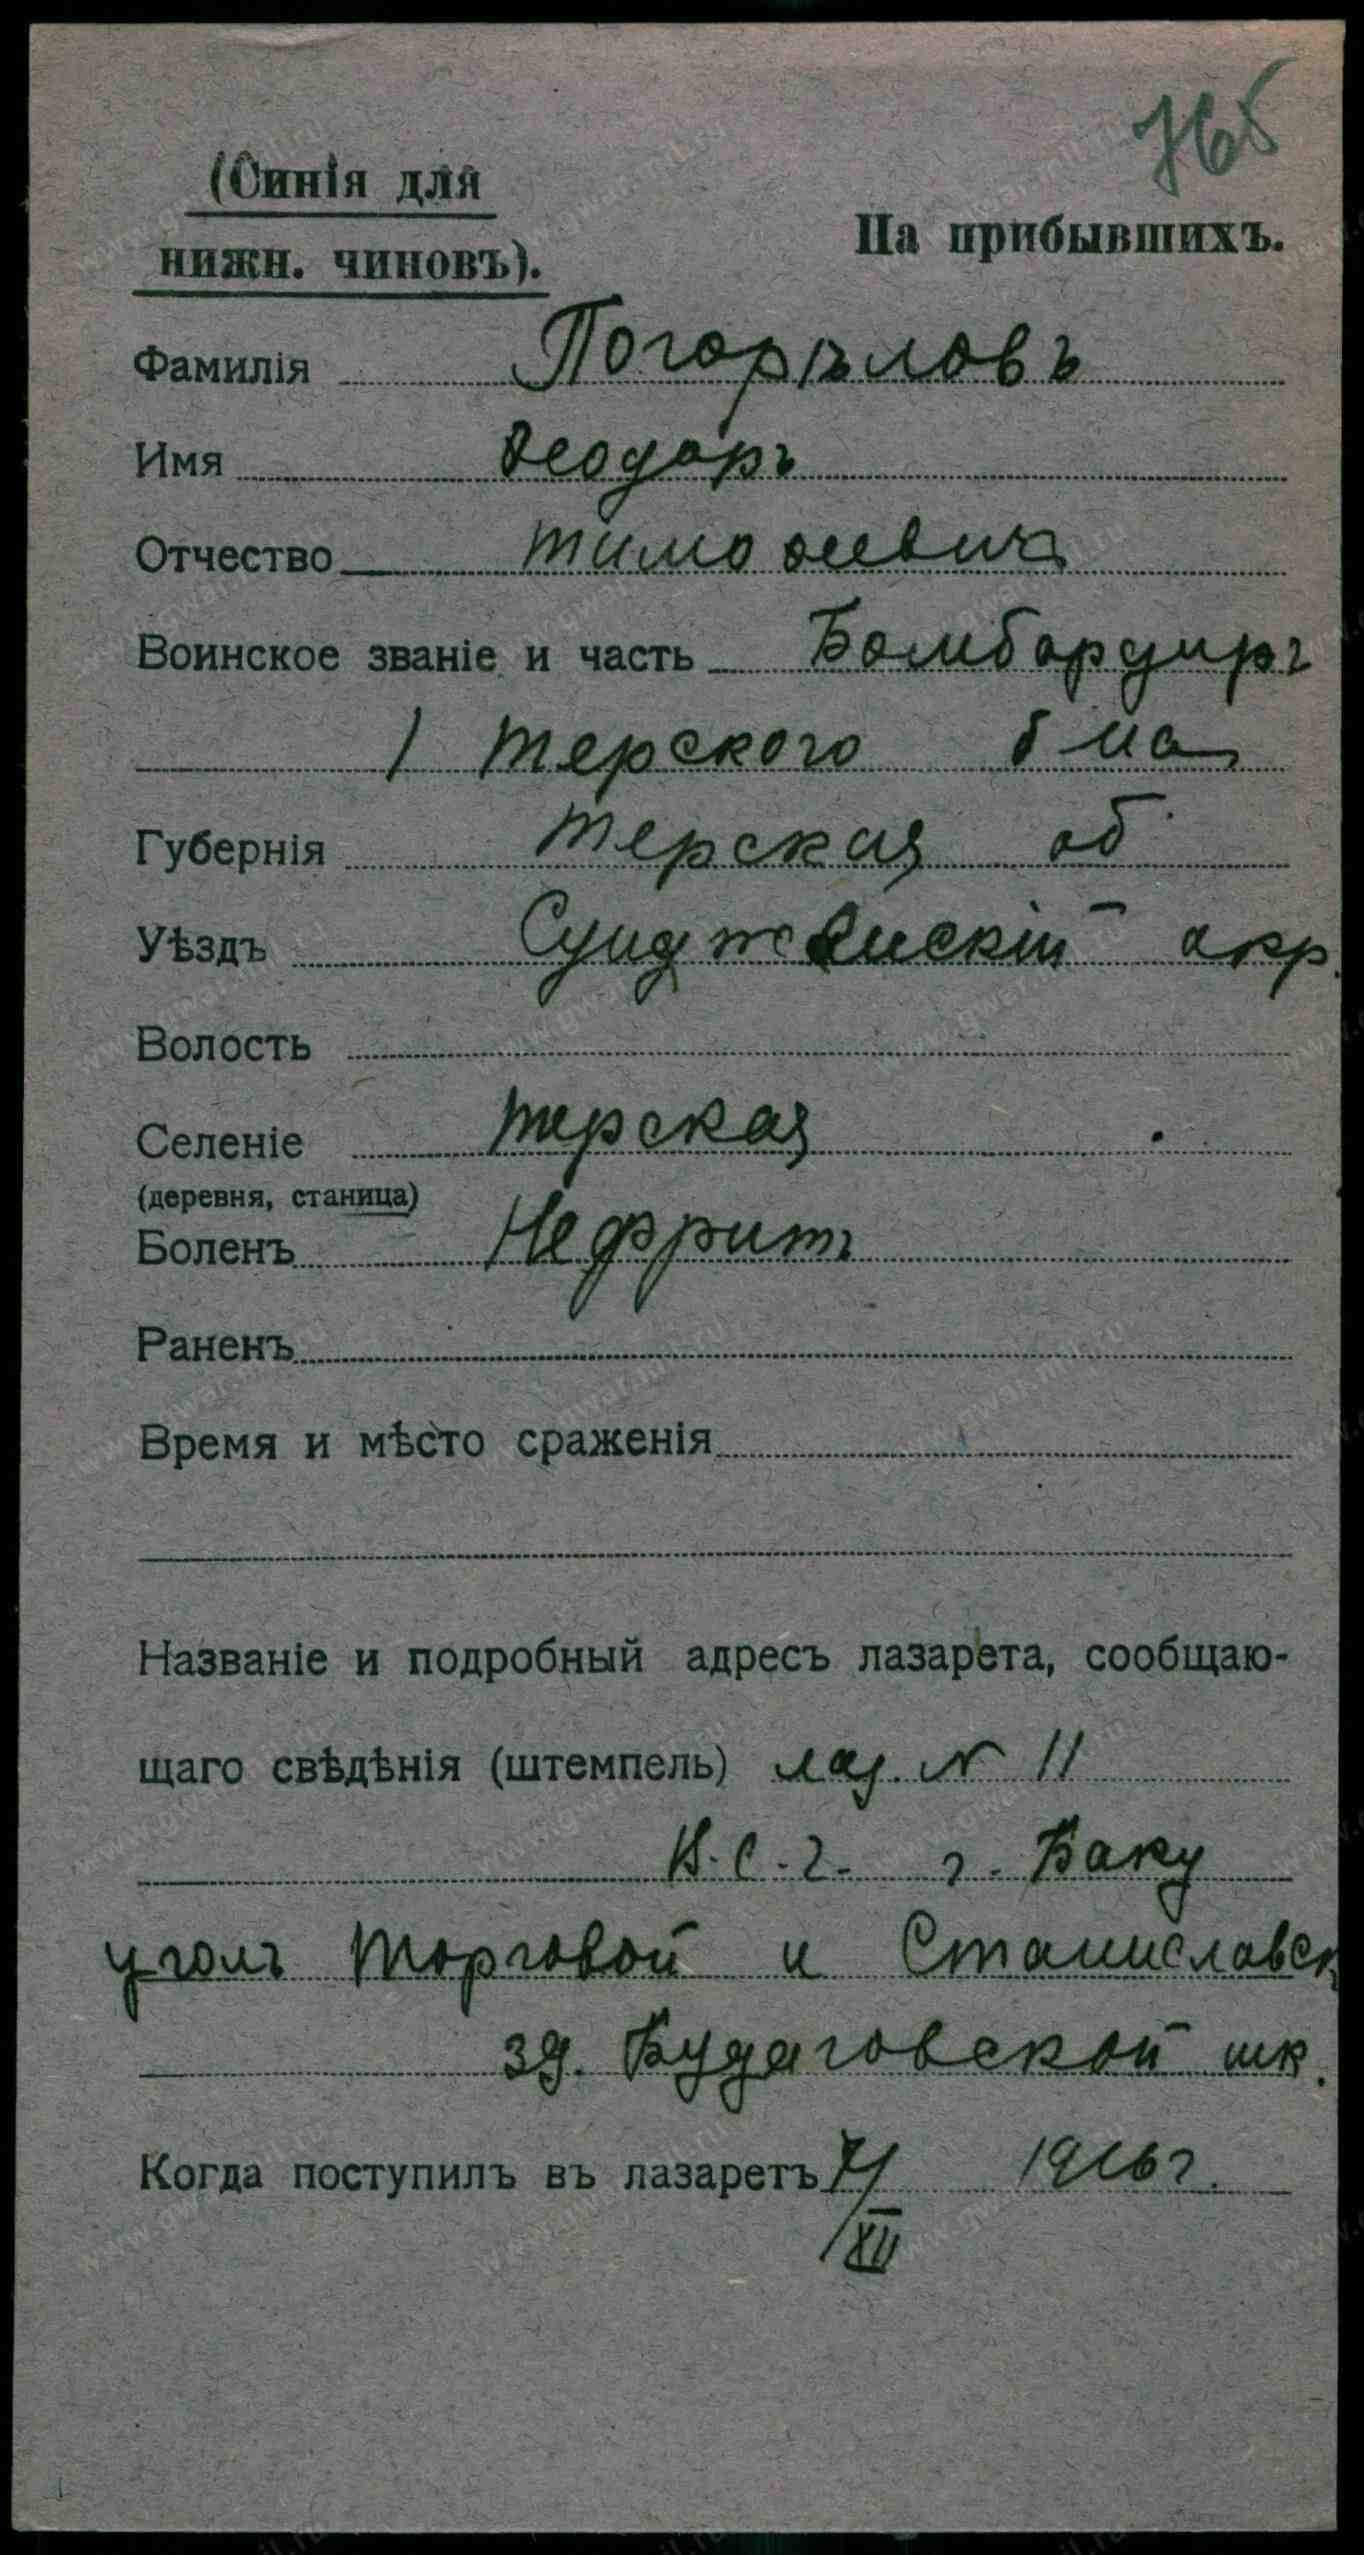 765
(Синія для
нижн. чиновъ).
На прибывшихъ.
Фамилія Погорѣловъ
Имя Ѳеодоръ
Отчество Тимоѳеевича
Воинское званіе и часть Бомбардиръ
1 Терского б-на
Губернія Терская об.
Уѣздъ Сунджэнскій окр.
Волость
Селеніе Терская
(деревня, станица)
Боленъ Нефритъ
Раненъ
Время и мѣсто сраженія
Названіе и подробный адресъ лазарета, сообщаю-
щаго свѣдѣнія (штемпель) лаз. № 11
В.С.Г. г. Баку
уголъ Торговой и Станиславск
зд. Будаговской шк.
Когда поступилъ въ лазаретъ 7/XII 1916 г.